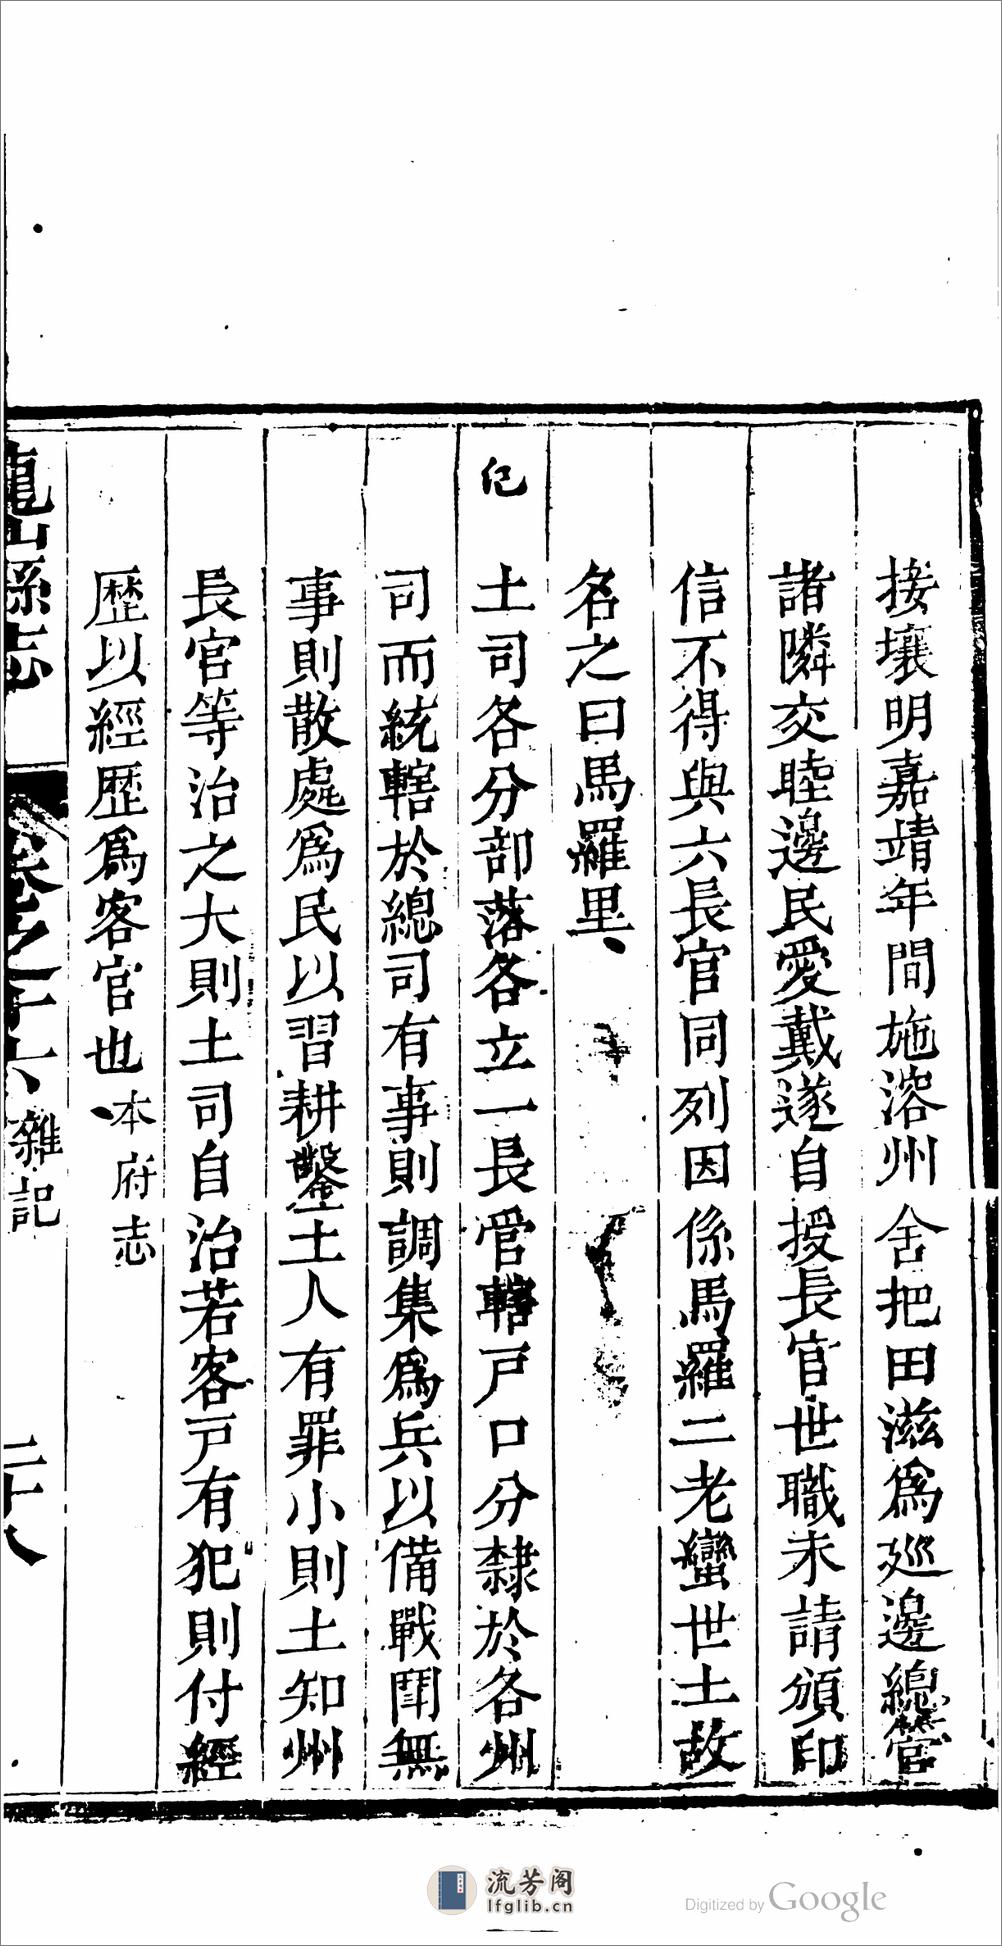 接壤明嘉靖年間施溶州舍把田滋爲廵邊總管
諸隣交睦邊民愛戴遂自授長官世職未請頒印
信不得與六長官同列因係馬羅二老蠻世土故
名之曰馬羅里
土司各分部落各立一長官轄戸口分隸於各州
司而統轄於總司有事則調集爲兵以備戰鬪無
事則散處爲民以習耕鑿土人有罪小則土知州
長官等治之大則土司自治若客戸有犯則付經
歷以經歷爲客官也本府志
龍山縣志
卷之十六
雜記
二十八
流芳阁
lfglib.cn
Digitized by Google